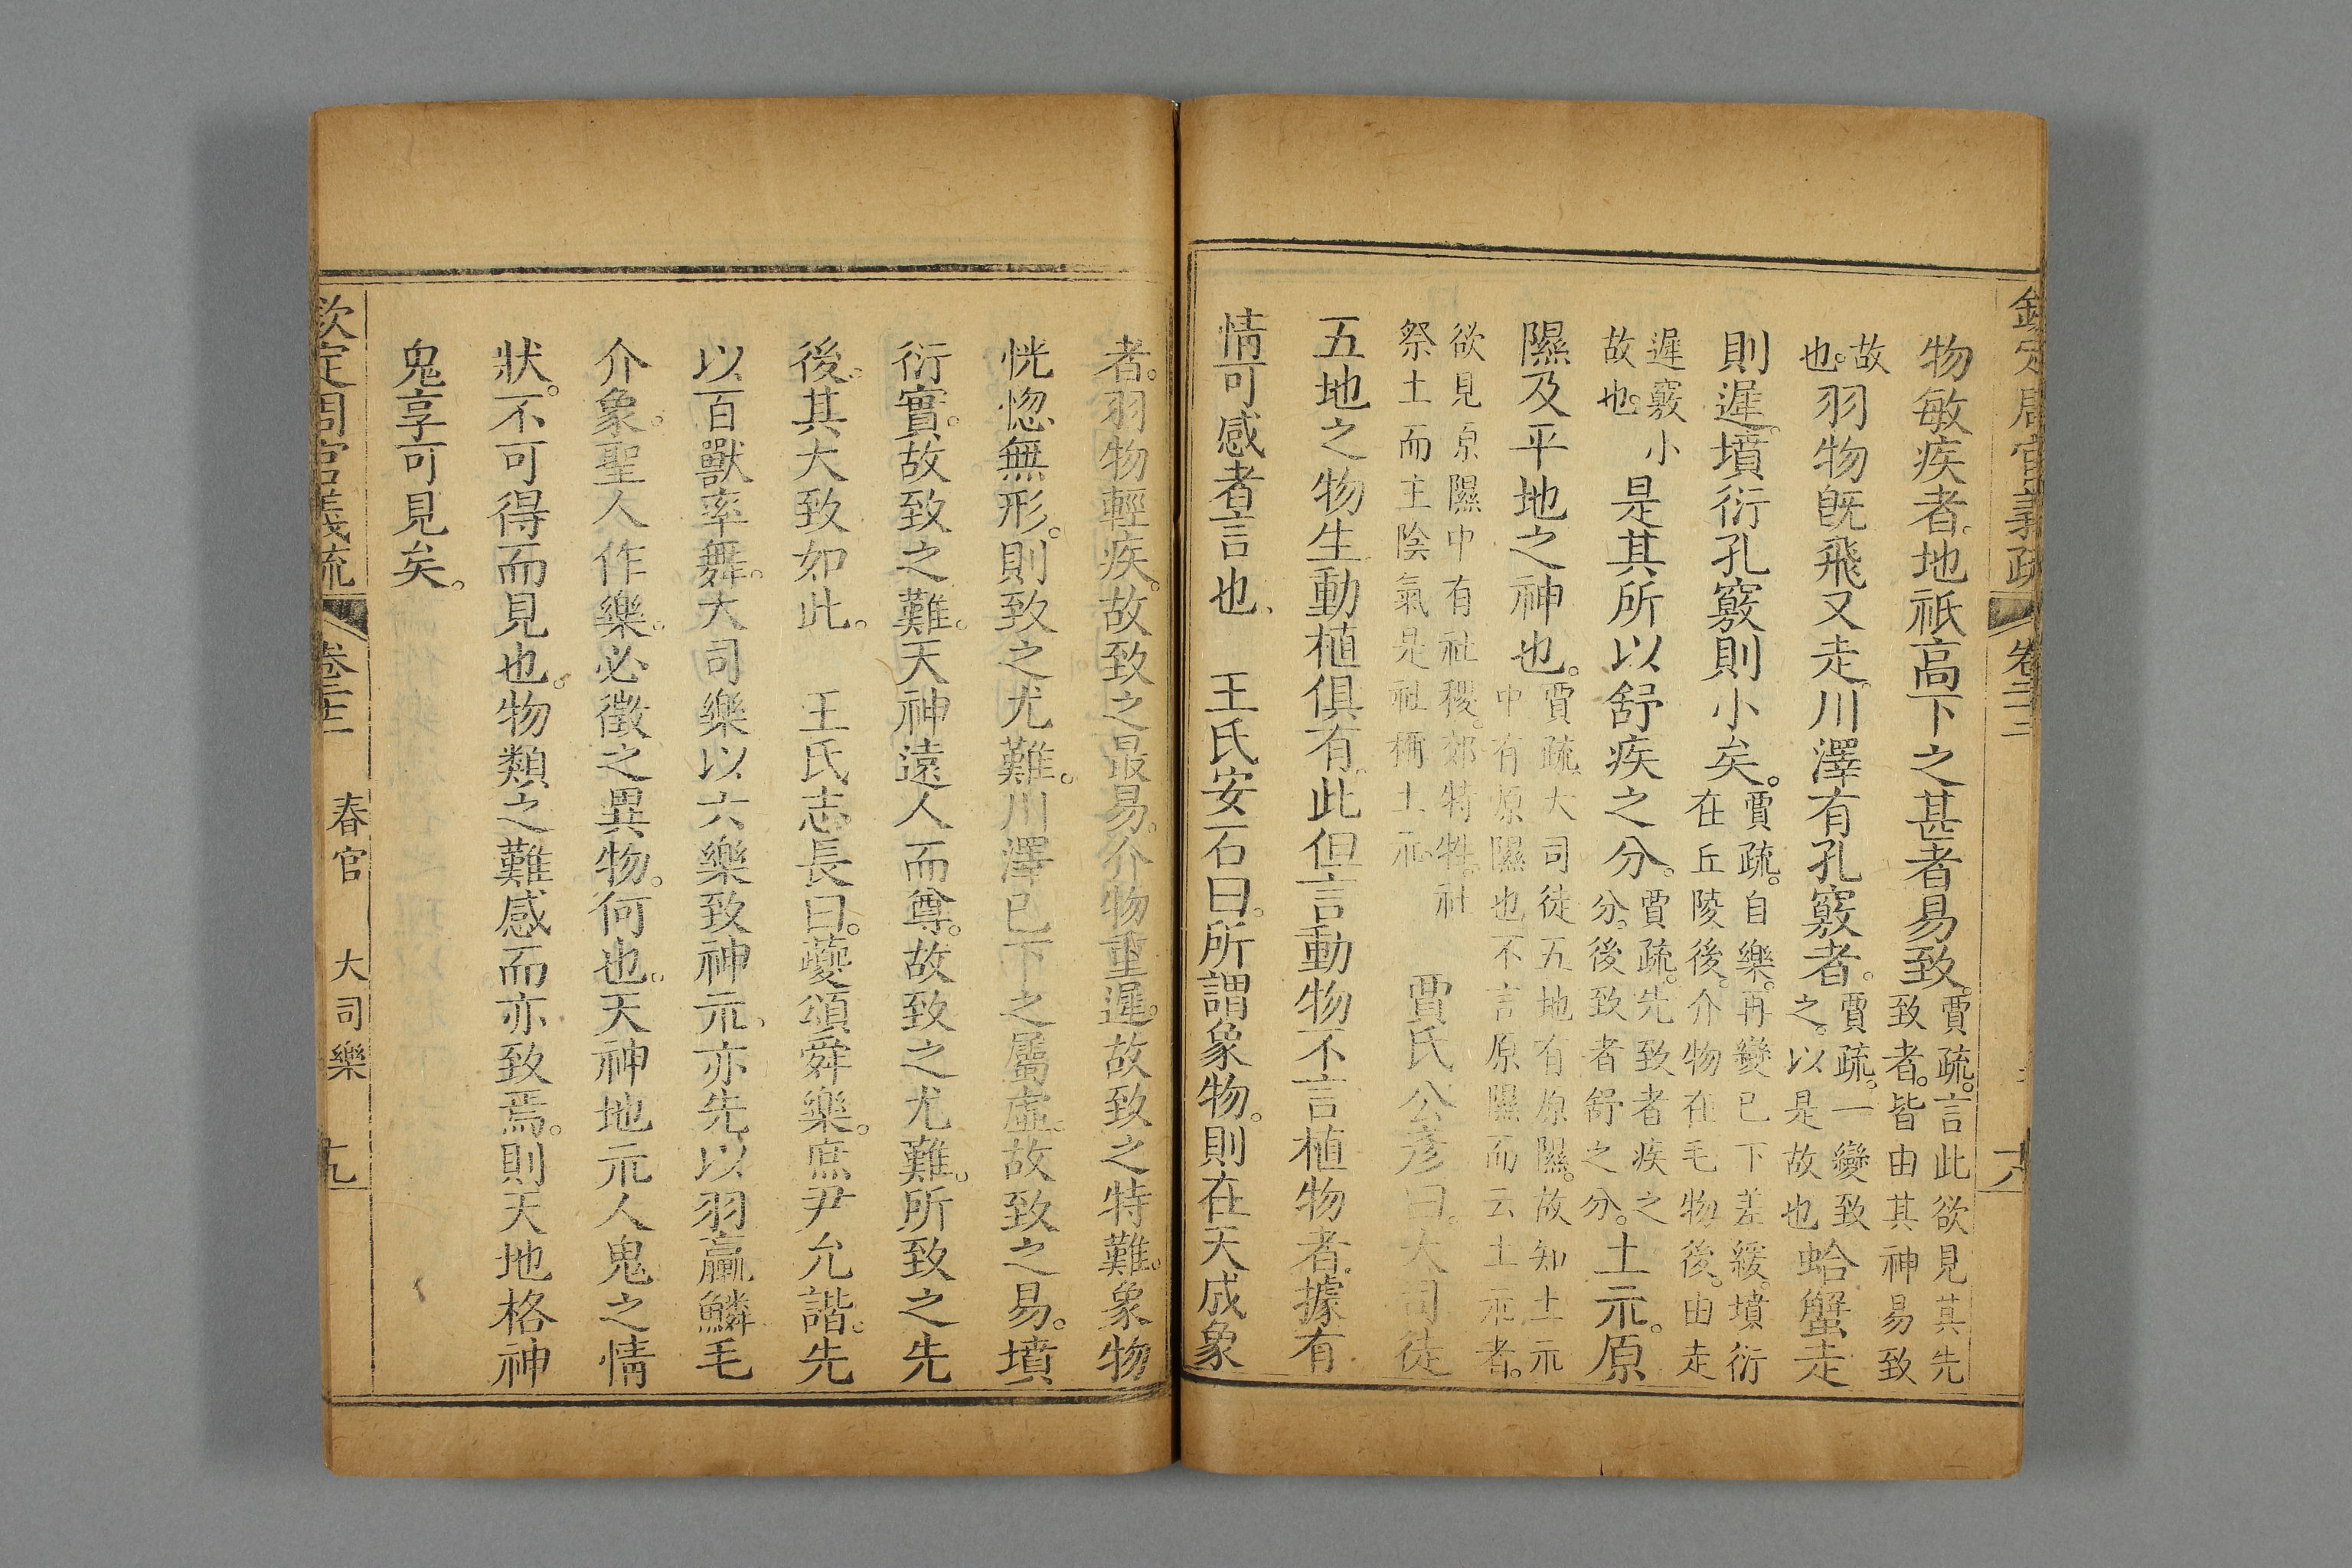 欽定周官義疏 卷二十二 十八
物敏疾者。地祇高下之甚者易致。賈疏。言此欲見其先致者。皆由其神易致
故也。羽物旣飛又走。川澤有孔竅者。賈疏。一變致之。以是故也蛤蟹走
則遲。墳衍孔竅則小矣。賈疏。自樂。再變已下差緩。墳衍在丘陵後。介物在毛物後。由走
遲竅小故也。是其所以舒疾之分。賈疏。先致者疾之分。後致者舒之分。土示。原
隰及平地之神也。賈疏。大司徒五地有原隰。故知土示中有原隰也不言原隰而云土示者。
欲見原隰中有社稷。郊特牲。社祭土而主陰氣是社稱土示。 賈氏公彥曰。大司徒
五地之物生動植俱有。此但言動物不言植物者。據有
情可感者言也、 王氏安石曰。所謂象物。則在天成象
者。羽物輕疾。故致之最易。介物重遲。故致之特難。象物
恍惚無形。則致之尤難。川澤已下之屬虛。故致之易。墳
衍實。故致之難。天神遠人而尊。故致之尤難。所致之先
後。其大致如此。 王氏志長曰。夔頌舜樂。庶尹允諧。先
以百獸率舞。大司樂以六樂致神示、亦先以羽臝鱗毛
介象。聖人作樂。必徵之異物。何也。天神地示人鬼之情
狀。不可得而見也。物類之難感而亦致焉。則天地格神
鬼享可見矣。
欽定周官義疏 卷二十二 春官 大司樂 十九